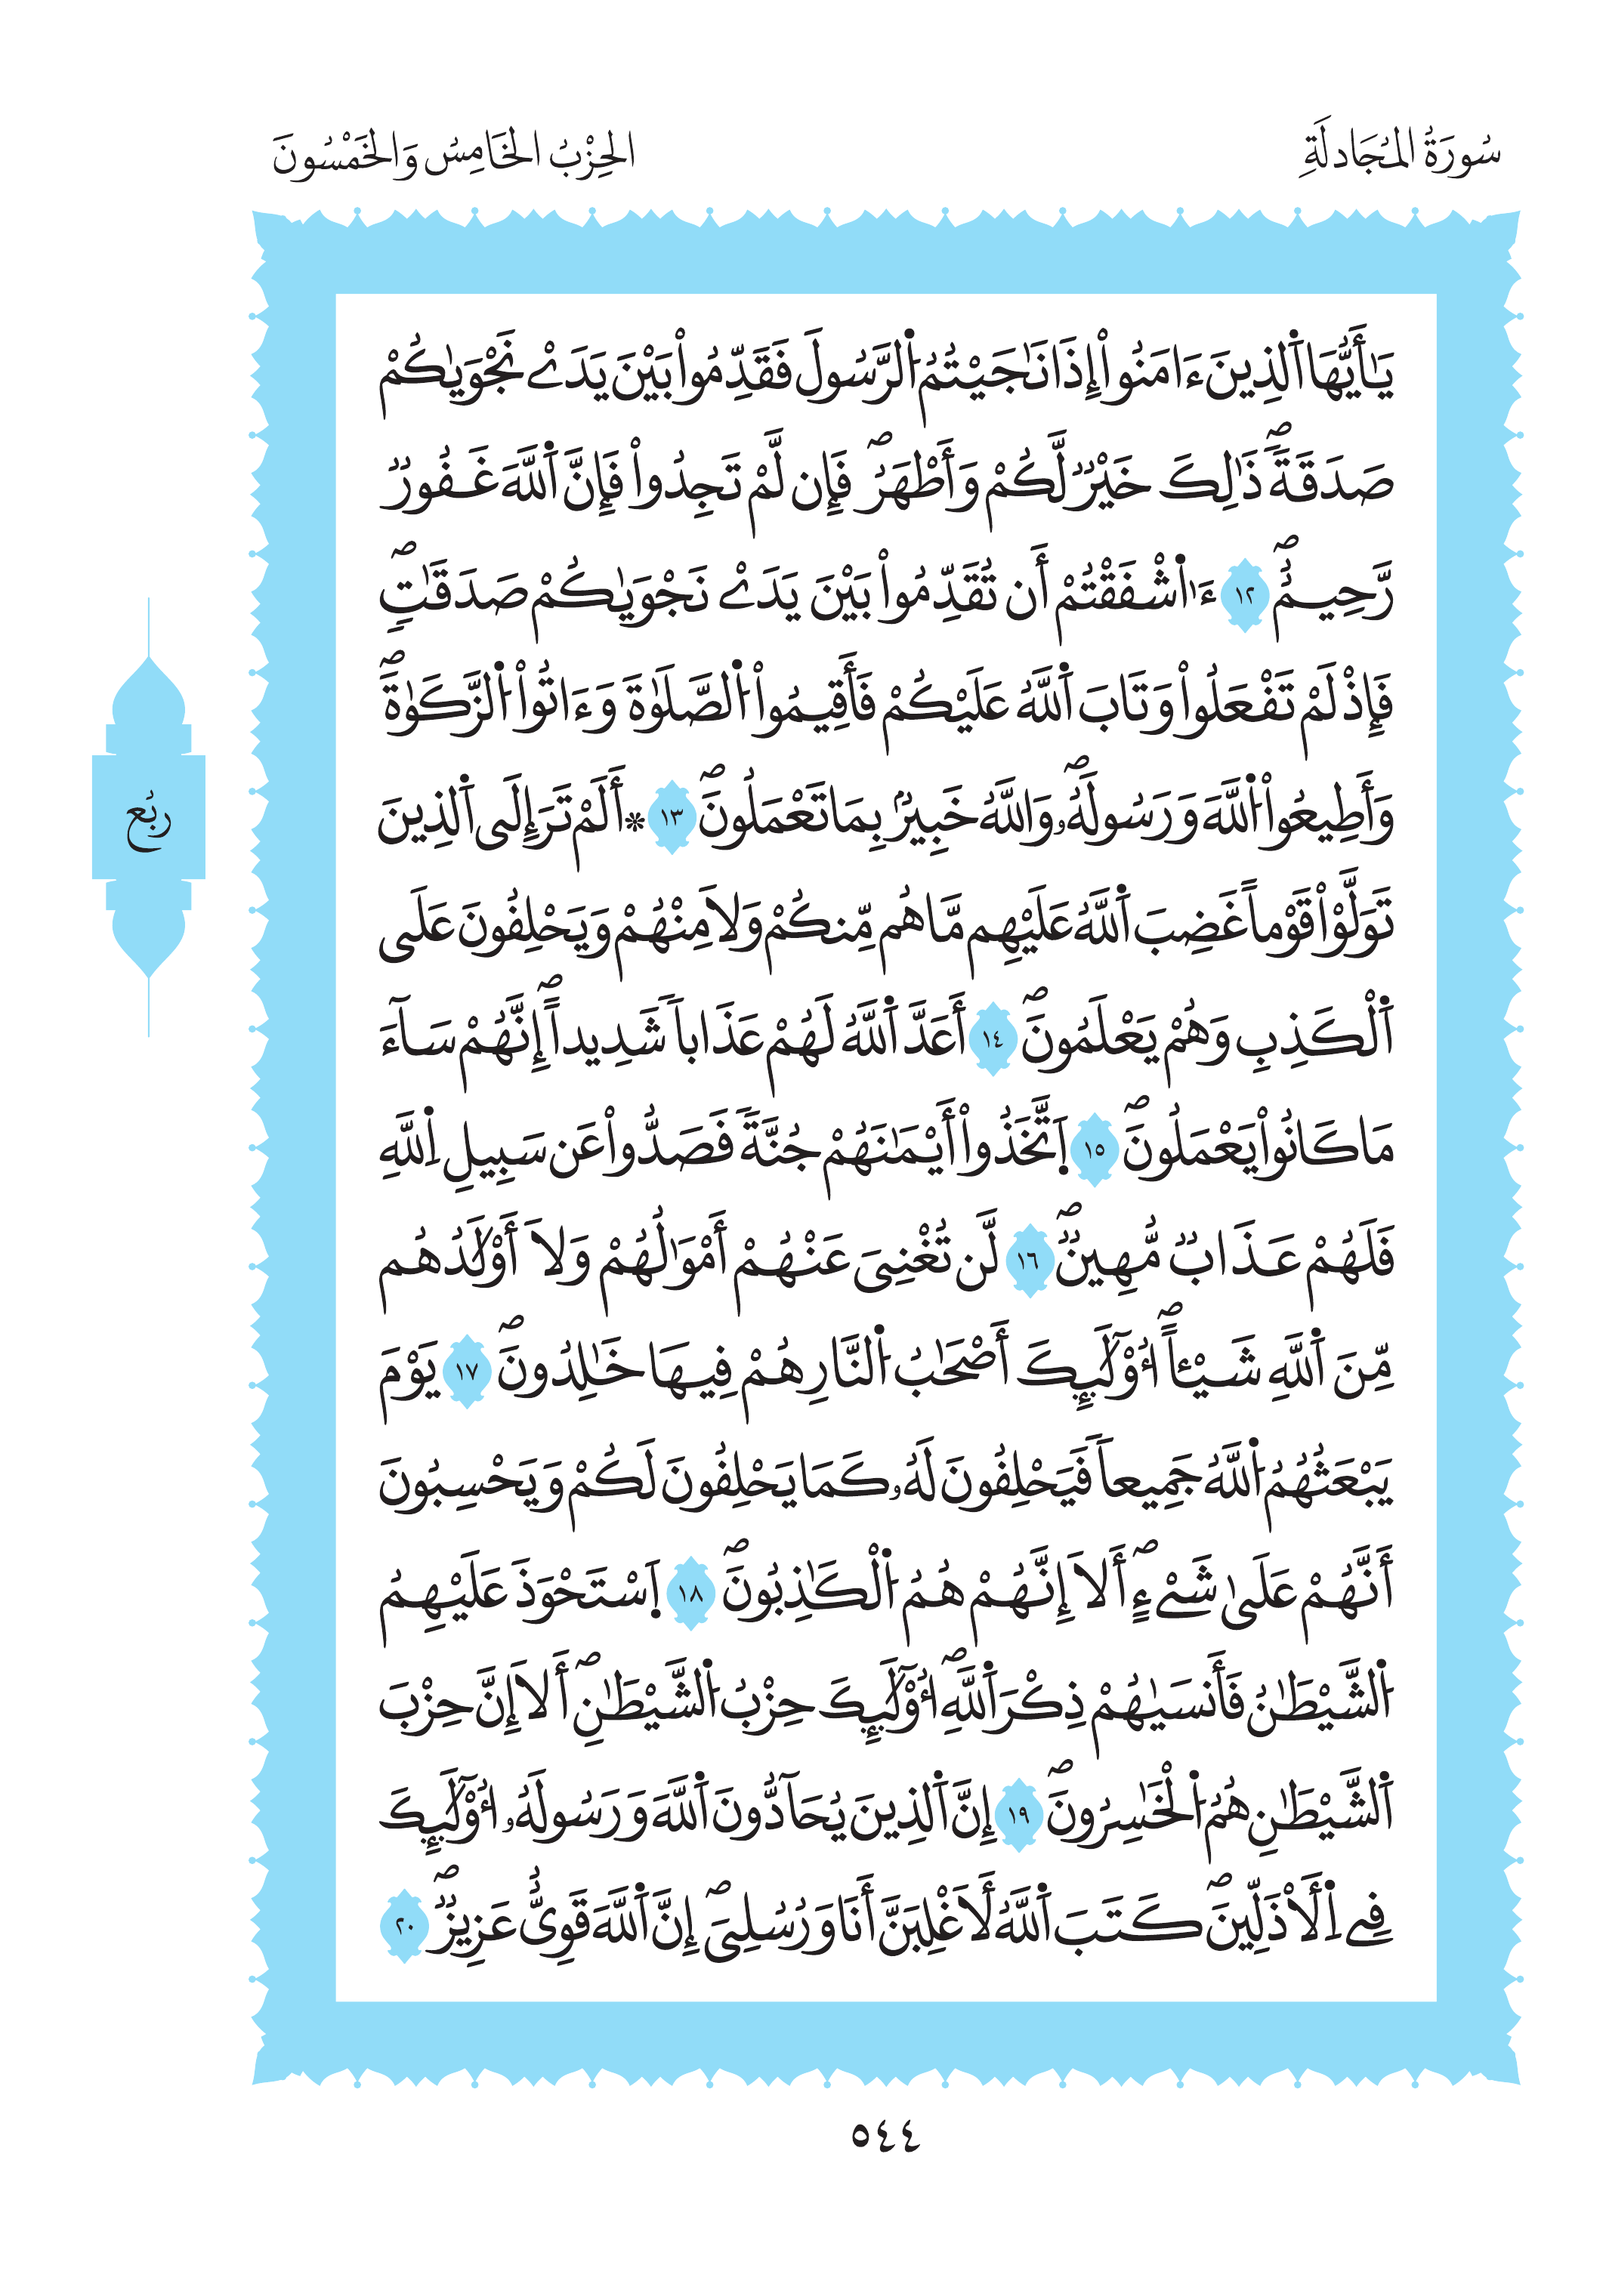 سُورَةُ المُجَادلَةِ
الحِزْبُ الخَامِسُ وَالخَمْسُونَ
يَٰٓأَيُّهَا اَ۬لذِينَ ءَامَنُوٓاْ إِذَا نَٰجَيْتُمُ اُ۬لرَّسُولَ فَقَدِّمُواْ بَيْنَ يَدَےْ نَجْوَيٰكُمْ
صَدَقَةٗۖ ذَٰلِكَ خَيْرٞ لَّكُمْ وَأَطْهَرُۖ فَإِن لَّمْ تَجِدُواْ فَإِنَّ اَ۬للَّهَ غَفُورٞ
رَّحِيمٌۖ ١٢ ءَآشْفَقْتُمْ أَن تُقَدِّمُواْ بَيْنَ يَدَےْ نَجْوَيٰكُمْ صَدَقَٰتٖۖ
فَإِذْ لَمْ تَفْعَلُواْ وَتَابَ اَ۬للَّهُ عَلَيْكُمْ فَأَقِيمُواْ اُ۬لصَّلَوٰةَ وَءَاتُواْ اُ۬لزَّكَوٰةَۖ
وَأَطِيعُواْ اُ۬للَّهَ وَرَسُولَهُۥۖ وَاللَّهُ خَبِيرُۢ بِمَا تَعْمَلُونَۖ ١٣ ۞ أَلَمْ تَرَ إِلَى اَ۬لذِينَ
تَوَلَّوْاْ قَوْماً غَضِبَ اَ۬للَّهُ عَلَيْهِم مَّا هُم مِّنكُمْ وَلَا مِنْهُمْ وَيَحْلِفُونَ عَلَى
اَ۬لْكَذِبِ وَهُمْ يَعْلَمُونَۖ ١٤ أَعَدَّ اَ۬للَّهُ لَهُمْ عَذَاباٗ شَدِيداًۖ إِنَّهُمْ سَآءَ
مَا كَانُواْ يَعْمَلُونَۖ ١٥ اَ۪تَّخَذُوٓاْ أَيْمَٰنَهُمْ جُنَّةٗ فَصَدُّواْ عَن سَبِيلِ اِ۬للَّهِ
فَلَهُمْ عَذَابٞ مُّهِينٞۖ ١٦ لَّن تُغْنِيَ عَنْهُمْ أَمْوَٰلُهُمْ وَلَآ أَوْلَٰدُهُم
مِّنَ اَ۬للَّهِ شَيْـٔاًۖ ا۟وْلَٰٓئِكَ أَصْحَٰبُ اُ۬لنَّارِ هُمْ فِيهَا خَٰلِدُونَۖ ١٧ يَوْمَ
يَبْعَثُهُمُ اُ۬للَّهُ جَمِيعاٗ فَيَحْلِفُونَ لَهُۥ كَمَا يَحْلِفُونَ لَكُمْ وَيَحْسِبُونَ
أَنَّهُمْ عَلَىٰ شَےْءٍۖ أَلَآ إِنَّهُمْ هُمُ اُ۬لْكَٰذِبُونَۖ ١٨ اَ۪سْتَحْوَذَ عَلَيْهِمُ
اُ۬لشَّيْطَٰنُ فَأَنسَيٰهُمْ ذِكْرَ اَ۬للَّهِۖ ا۟وْلَٰٓئِكَ حِزْبُ اُ۬لشَّيْطَٰنِۖ أَلَآ إِنَّ حِزْبَ
اَ۬لشَّيْطَٰنِ هُمُ اُ۬لْخَٰسِرُونَۖ ١٩ إِنَّ اَ۬لذِينَ يُحَآدُّونَ اَ۬للَّهَ وَرَسُولَهُۥٓ ا۟وْلَٰٓئِكَ
فِے اِ۬لَاْذَلِّينَۖ كَتَبَ اَ۬للَّهُ لَأَغْلِبَنَّ أَنَا وَرُسُلِيَۖ إِنَّ اَ۬للَّهَ قَوِيٌّ عَزِيزٞۖ ٢٠
ربُع
٥٤٤